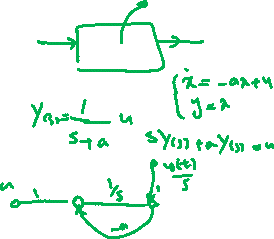 ẋ = -ax+u
y = x
Y(s) = 1/(s+a) u
sY(s) + aY(s) = u
u 1 1/s 1
-a